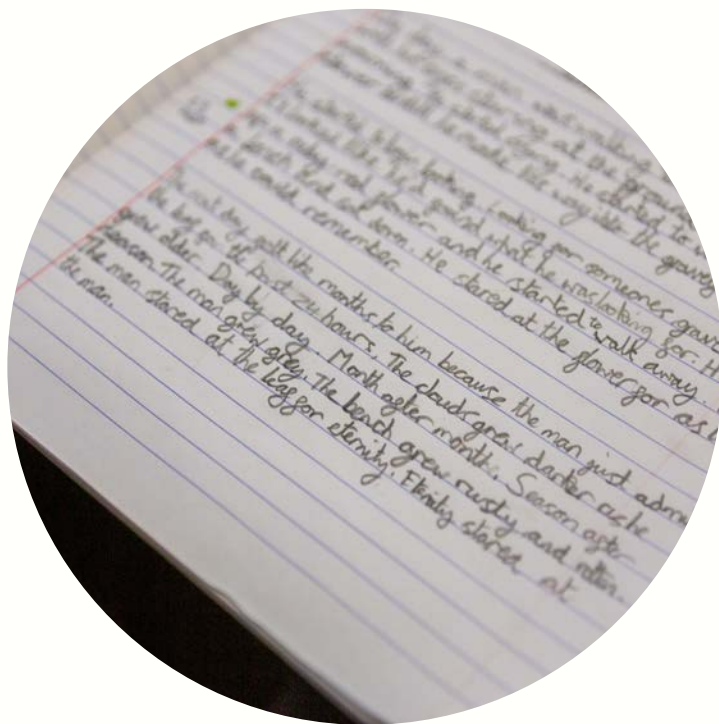 was walking
staring at the ground
He started to
he made his way into the gravey
looking for someones grave
It looked like he'd found what he was looking for. H
a ruby red flower and he started to walk away.
bench and sat down. He stared at the flower for as l
as he could remember.
The next day felt like months to him because the man just admi
the leaf for the last 24 hours. The clouds grew darker as he
grew older. Day by day. Month after month. Season after
season. The man grew grey. The bench grew rusty and rotten.
The man stared at the leaf for eternity. Eternity stared at
the man.